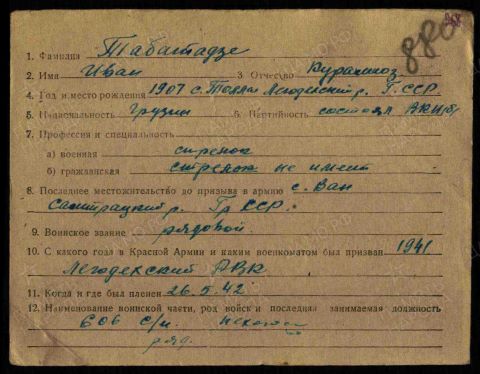 880
1. Фамилия Табатадзе
2. Имя Иван 3 Отчество
4. Год и место рождения 1907 с. р. Г. ССР
5. Национальность Грузин 6. Партийность состоял ВКП(б)
7. Профессия и специальность
а) военная стрелок
б) гражданская не имеет
8. Последнее местожительство до призыва в армию с. Ван
р. Гр ССР.
9. Воинское звание рядовой.
10. С какого года в Красной Армии и каким военкоматом был призван 1941
РВК
11. Когда и где был пленен 26.5.42
12. Наименование воинской части, род войск и последняя занимаемая должность
606 с/п.
ряд.